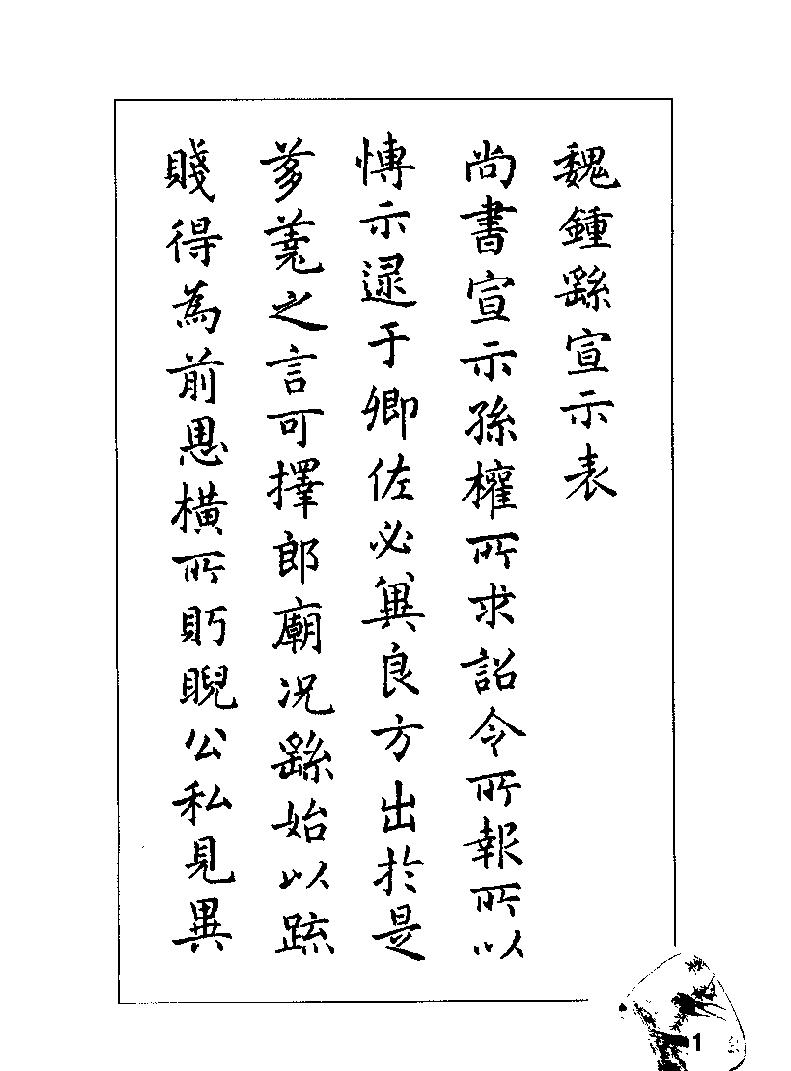 魏鍾繇宣示表
尚書宣示孫權所求詔令所報所以
博示逮于卿佐必冀良方出於是
芻蕘之言可擇郎廟况繇始以疏
賤得為前恩横所眄睨公私見異
1